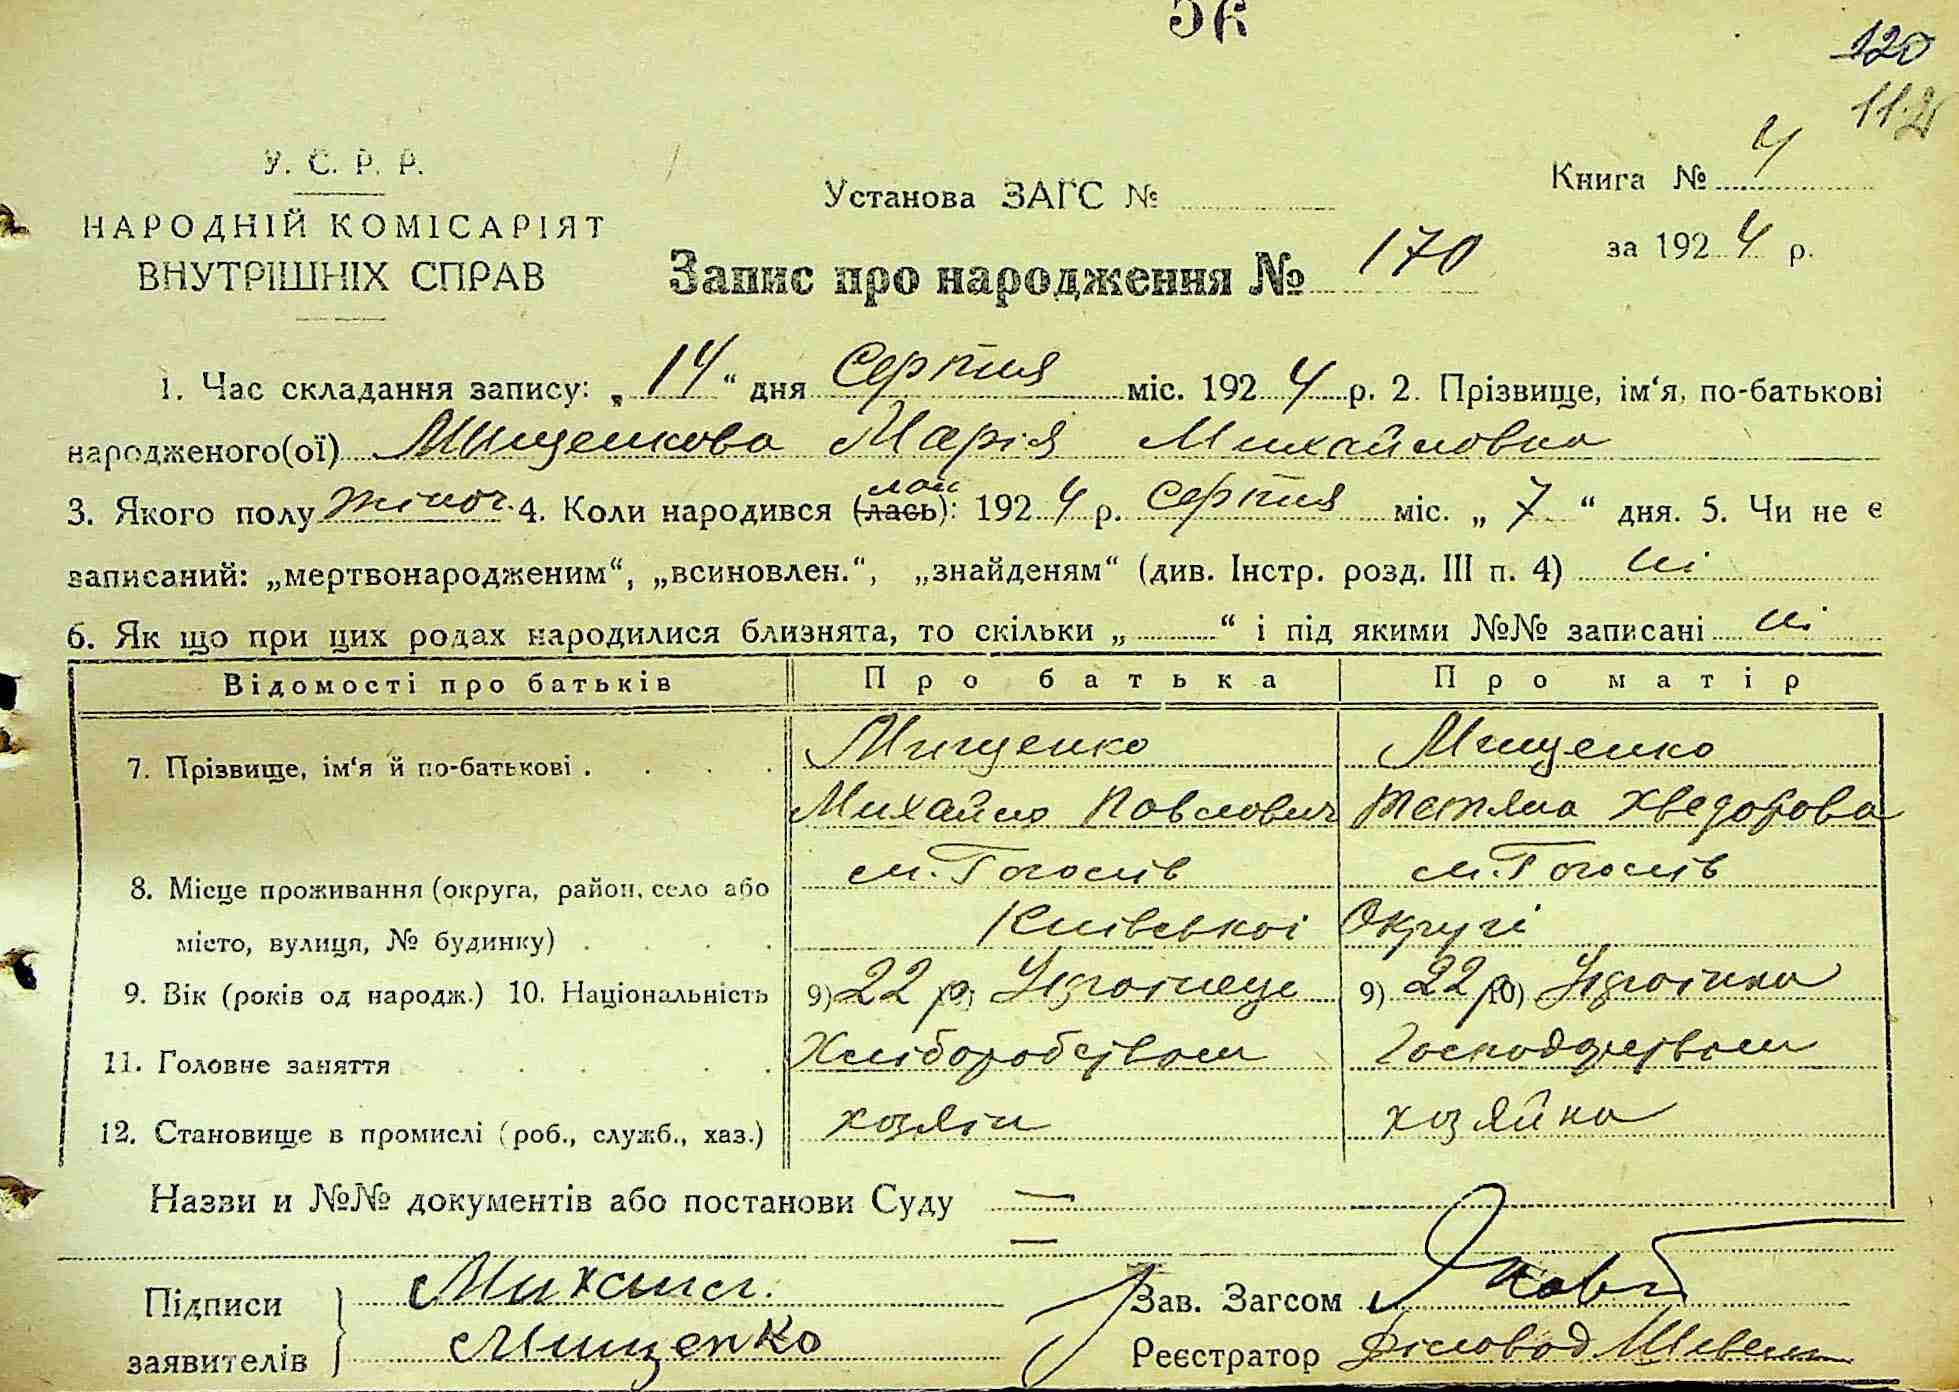 120
112
У. С. Р. Р.
НАРОДНІЙ КОМІСАРІЯТ
ВНУТРІШНІХ СПРАВ
Установа ЗАГС №
Книга № 4
за 1924 р.
Запис про народження № 170
1. Час складання запису: „14“ дня Серпня міс. 1924 р. 2. Прізвище, ім‘я, по-батькові
народженого(ої) Мищенкова Марія Михайловна
3. Якого полу жіноч. 4. Коли народився (лась): 1924 р. серпня міс. „7“ дня. 5. Чи не є
записаний: „мертвонародженим“, „всиновлен.“, „знайденям“ (див. Інстр. розд. III п. 4) ні
6. Як що при цих родах народилися близнята, то скільки „ “ і під якими №№ записані ні
Відомості про батьків Про батька Про матір
7. Прізвище, ім‘я й по-батькові . . . . Мищенко Мищенко
Михайло Павлович Тетяна Хведорова
8. Місце проживання (округа, район, село або м. Гоголів м. Гоголів
місто, вулиця, № будинку) . . . . Київської Округі
9. Вік (років од народж.) 10. Національність 9) 22 р. Українець 9) 22 р. 10) Українка
11. Головне заняття . . . . . Хліборобством Господарством
12. Становище в промислі (роб., служб., хаз.) хозяін хозяйка
Назви и №№ документів або постанови Суду —
—
Підписи
заявителів
Михаил.
Мищенко
Зав. Загсом
Реєстратор Діловод